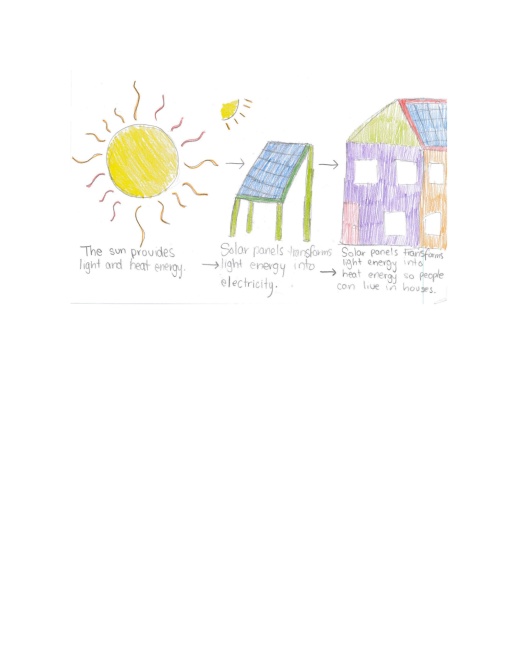 The sun provides
light and heat energy.
→ Solar panels transforms
light energy into
electricity.
→ Solar panels transforms
light energy into
heat energy so people
can live in houses.